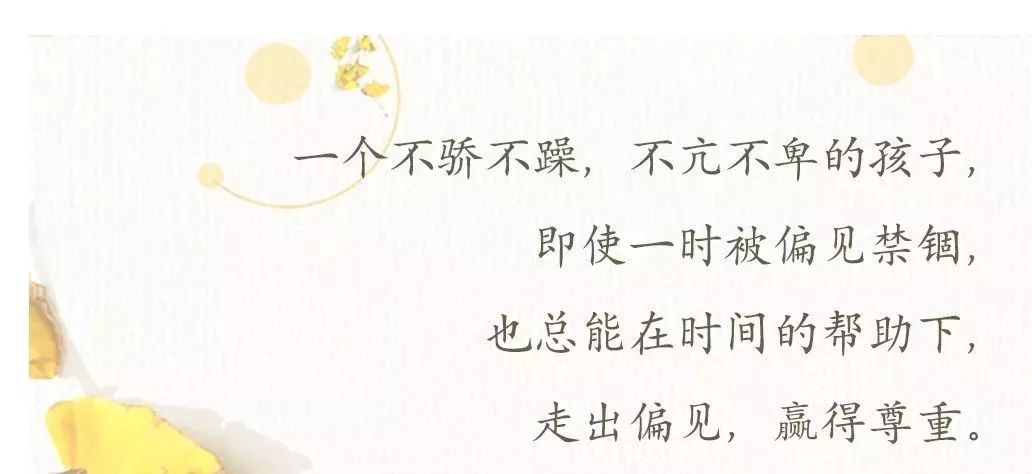 一个不骄不躁，不亢不卑的孩子，
即使一时被偏见禁锢，
也总能在时间的帮助下，
走出偏见，赢得尊重。